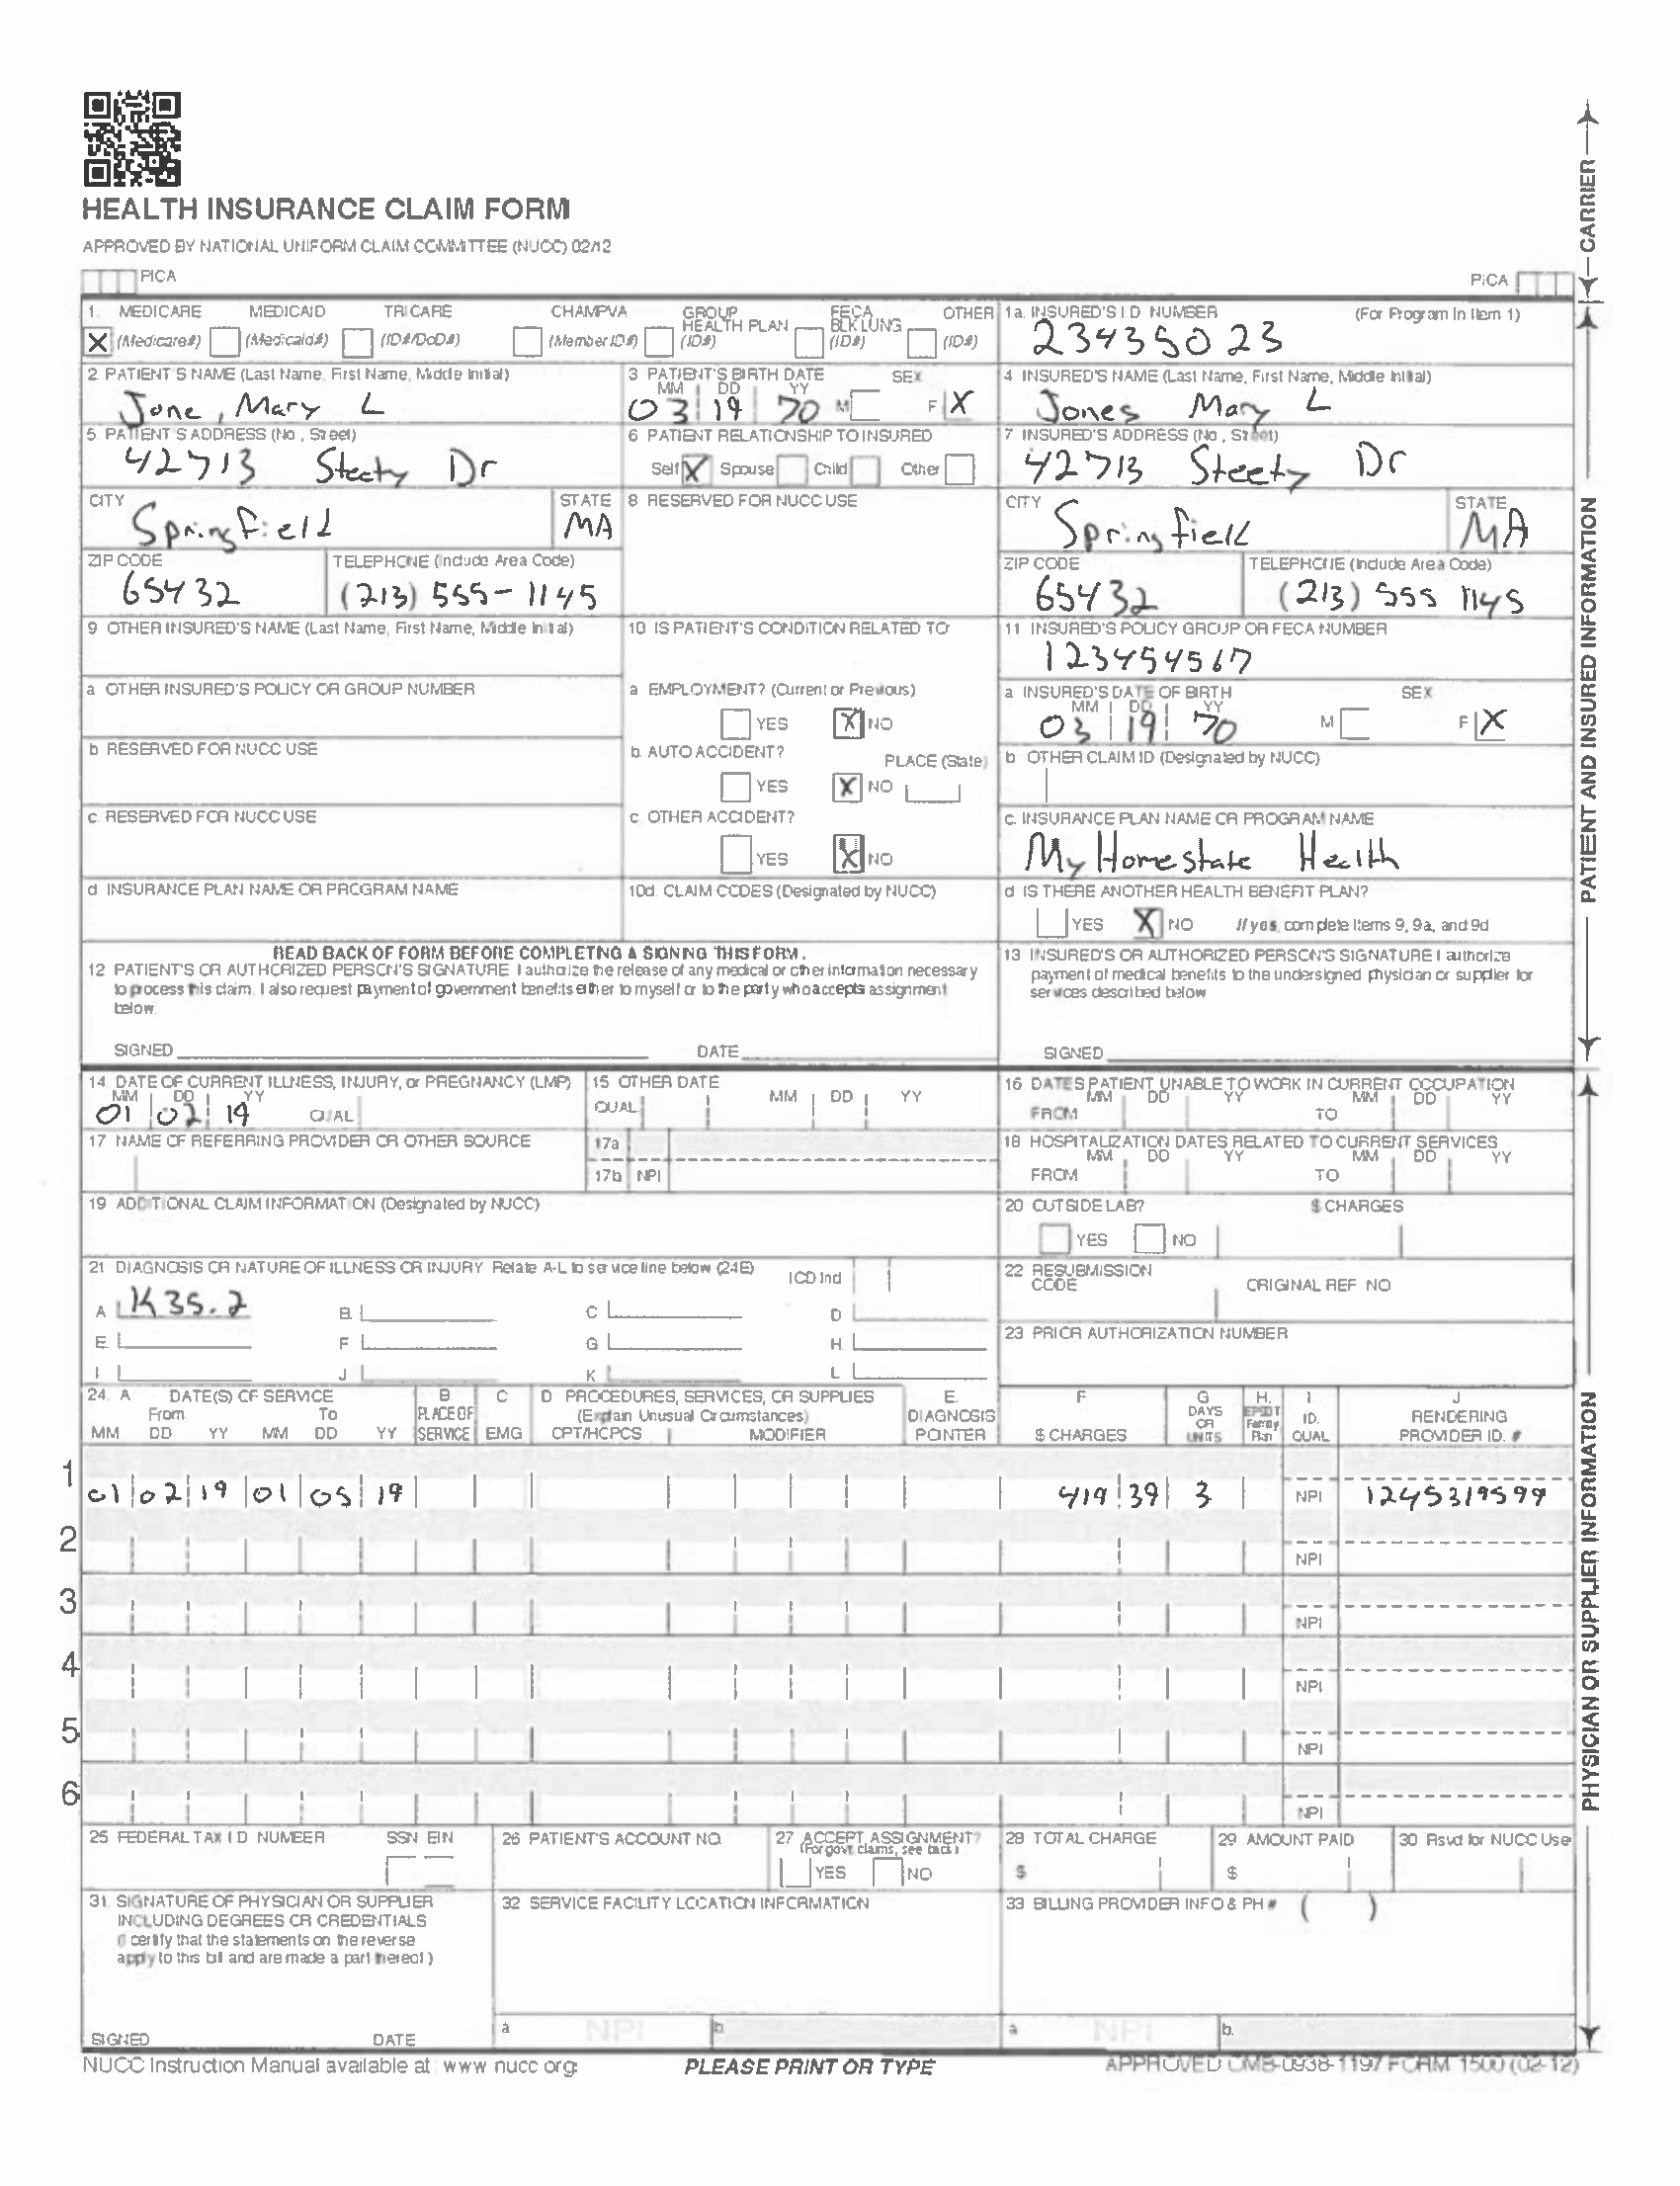 HEALTH INSURANCE CLAIM FORM
APPROVED BY NATIONAL UNIFORM CLAIM COMMITTEE (NUCC) 02/12
PICA
PICA
CARRIER
1. MEDICARE MEDICAID TRICARE CHAMPVA GROUP HEALTH PLAN FECA BLK LUNG OTHER
X (Medicare#) (Medicaid#) (ID#/DoD#) (Member ID#) (ID#) (ID#) (ID#)
1a. INSURED'S I.D. NUMBER (For Program in Item 1)
23435023
2 PATIENT'S NAME (Last Name, First Name, Middle Initial)
Jone, Mary L
3 PATIENT'S BIRTH DATE SEX
MM DD YY
03 19 70 M F X
4 INSURED'S NAME (Last Name, First Name, Middle Initial)
Jones Mary L
5 PATIENT'S ADDRESS (No., Street)
42713 Steety Dr
6 PATIENT RELATIONSHIP TO INSURED
Self X Spouse Child Other
7 INSURED'S ADDRESS (No., Street)
42713 Steety Dr
CITY STATE
Springfield MA
8 RESERVED FOR NUCC USE
CITY STATE
Springfield MA
ZIP CODE TELEPHONE (Include Area Code)
65432 (213) 555-1145
ZIP CODE TELEPHONE (Include Area Code)
65432 (213) 555 1145
9 OTHER INSURED'S NAME (Last Name, First Name, Middle Initial)
10 IS PATIENT'S CONDITION RELATED TO
11 INSURED'S POLICY GROUP OR FECA NUMBER
123454567
a OTHER INSURED'S POLICY OR GROUP NUMBER
a EMPLOYMENT? (Current or Previous)
YES X NO
a INSURED'S DATE OF BIRTH SEX
MM DD YY
03 19 70 M F X
b RESERVED FOR NUCC USE
b. AUTO ACCIDENT? PLACE (State)
YES X NO
b OTHER CLAIM ID (Designated by NUCC)
c. RESERVED FOR NUCC USE
c OTHER ACCIDENT?
YES X NO
c. INSURANCE PLAN NAME OR PROGRAM NAME
My Homestate Health
d INSURANCE PLAN NAME OR PROGRAM NAME
10d. CLAIM CODES (Designated by NUCC)
d IS THERE ANOTHER HEALTH BENEFIT PLAN?
YES X NO If yes, complete items 9, 9a, and 9d
READ BACK OF FORM BEFORE COMPLETING & SIGNING THIS FORM.
12 PATIENT'S OR AUTHORIZED PERSON'S SIGNATURE I authorize the release of any medical or other information necessary
to process this claim. I also request payment of government benefits either to myself or to the party who accepts assignment
below.
SIGNED DATE
13 INSURED'S OR AUTHORIZED PERSON'S SIGNATURE I authorize
payment of medical benefits to the undersigned physician or supplier for
services described below
SIGNED
PATIENT AND INSURED INFORMATION
14 DATE OF CURRENT ILLNESS, INJURY, or PREGNANCY (LMP)
MM DD YY
01 02 19 QUAL
15 OTHER DATE
QUAL MM DD YY
16 DATES PATIENT UNABLE TO WORK IN CURRENT OCCUPATION
MM DD YY MM DD YY
FROM TO
17 NAME OF REFERRING PROVIDER OR OTHER SOURCE
17a
17b NPI
18 HOSPITALIZATION DATES RELATED TO CURRENT SERVICES
MM DD YY MM DD YY
FROM TO
19 ADDITIONAL CLAIM INFORMATION (Designated by NUCC)
20 OUTSIDE LAB? $ CHARGES
YES NO
21 DIAGNOSIS OR NATURE OF ILLNESS OR INJURY Relate A-L to service line below (24E) ICD Ind
A K35.2 B. C D
E. F G H.
I J K L
22 RESUBMISSION CODE ORIGINAL REF NO
23 PRIOR AUTHORIZATION NUMBER
24. A DATE(S) OF SERVICE B. C D PROCEDURES, SERVICES, OR SUPPLIES E. F G H. I J
From To PLACE OF (Explain Unusual Circumstances) DIAGNOSIS DAYS OR EPSDT Family ID. RENDERING
MM DD YY MM DD YY SERVICE EMG CPT/HCPCS MODIFIER POINTER $ CHARGES UNITS Plan QUAL PROVIDER ID. #
1 01 02 19 01 05 19 419 39 3 NPI 1245319599
2 NPI
3 NPI
4 NPI
5 NPI
6 NPI
25 FEDERAL TAX I D NUMBER SSN EIN
26 PATIENT'S ACCOUNT NO.
27 ACCEPT ASSIGNMENT?
(For govt. claims, see back)
YES NO
28 TOTAL CHARGE
$
29 AMOUNT PAID
$
30 Rsvd for NUCC Use
31. SIGNATURE OF PHYSICIAN OR SUPPLIER
INCLUDING DEGREES OR CREDENTIALS
(I certify that the statements on the reverse
apply to this bill and are made a part thereof.)
SIGNED DATE
32 SERVICE FACILITY LOCATION INFORMATION
a NPI b
33 BILLING PROVIDER INFO & PH # ( )
a NPI b.
PHYSICIAN OR SUPPLIER INFORMATION
NUCC Instruction Manual available at: www nucc org
PLEASE PRINT OR TYPE
APPROVED OMB-0938-1197 FORM 1500 (02-12)